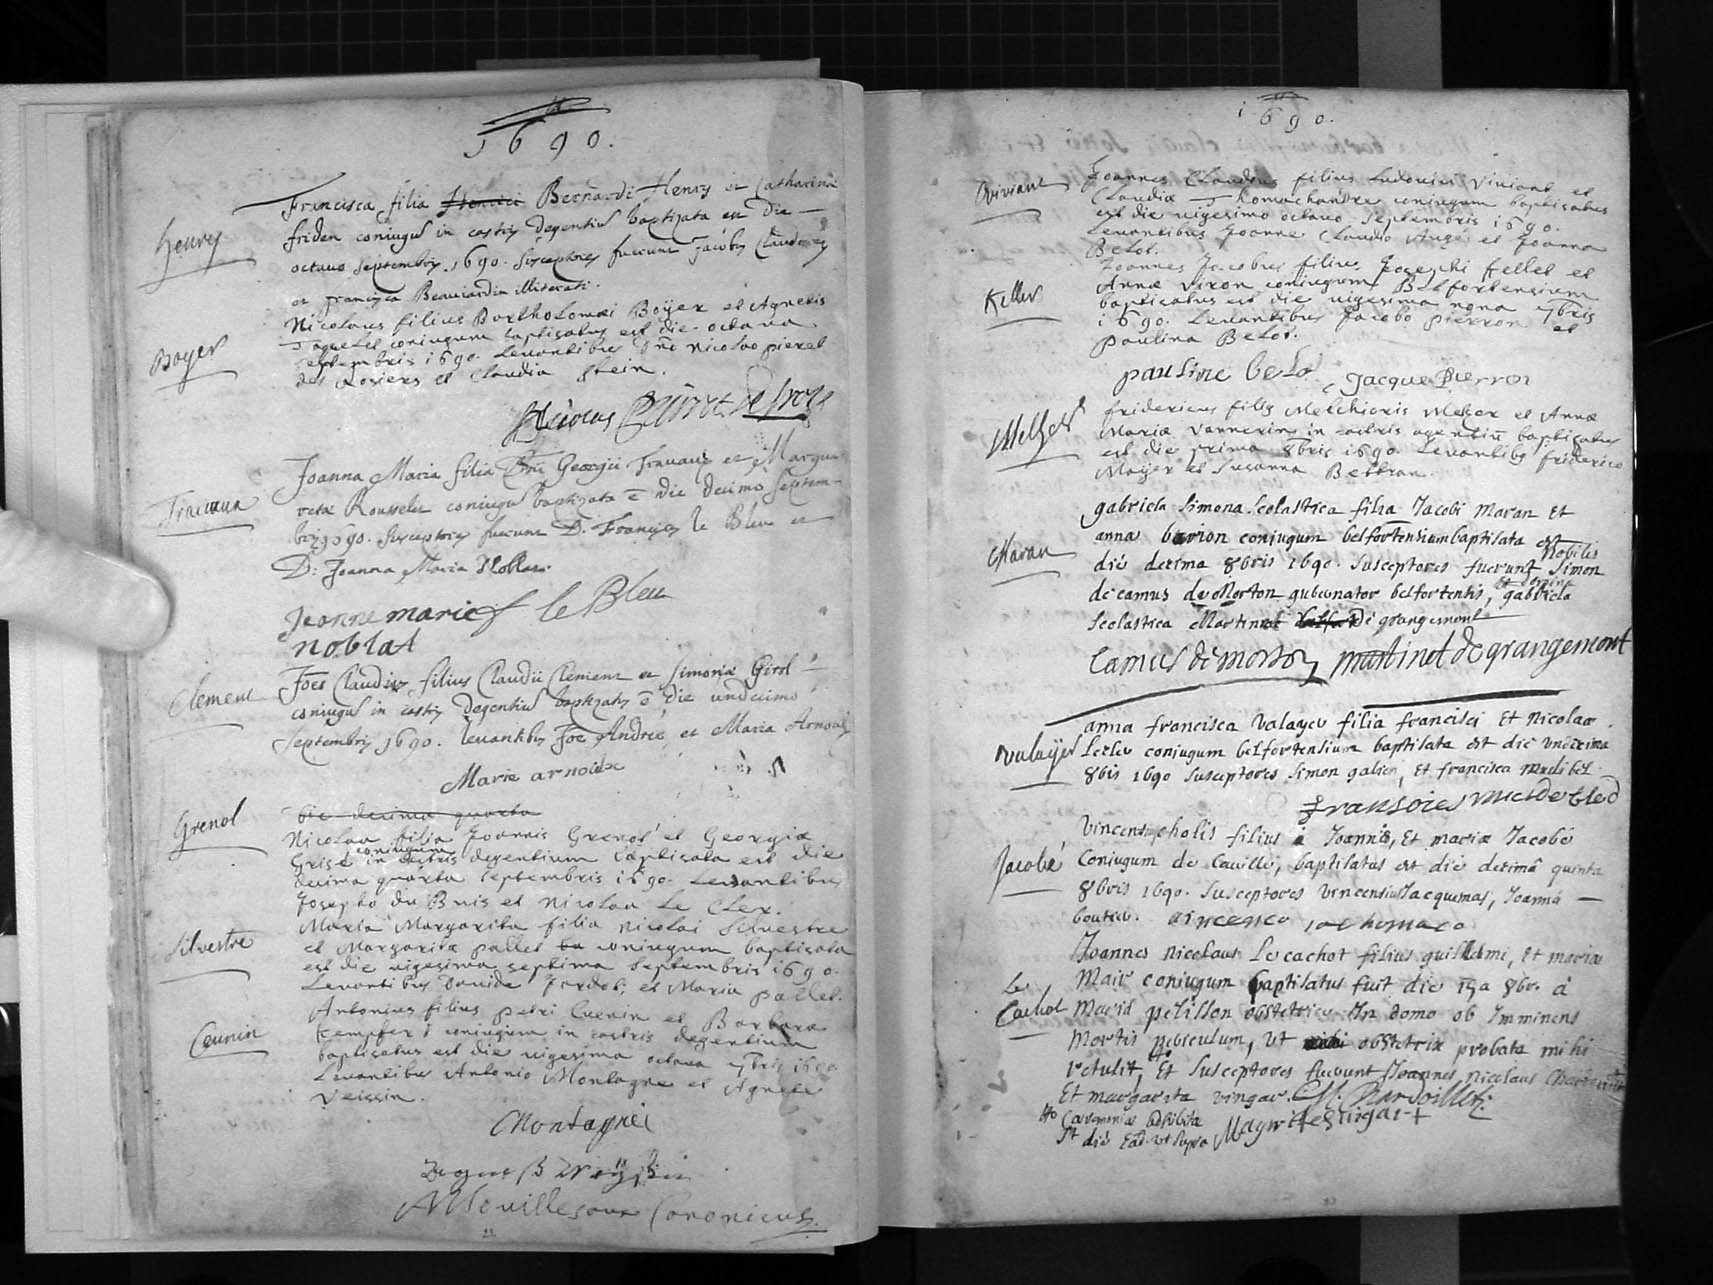 1690.
Henry
Francisca filia Bernardi Henry et Catharinæ
friden coniugũ in castris degentiũ baptizata est die
octauo Septembris 1690. Susceptores fuerunt Jacobus
et francisca illiterati.
Boyer
Nicolaus filius Bartholomæi Boÿer et Agnetis
Jaquelel coniugum baptisatus est die octaua
septembris 1690. Leuantibus Dno Nicolao pierel
des Rosiers et Claudia Stein.
Joanna Maria filia Dni Georgii et Marga
retæ coniugũ baptizata ē die decimo Septem
bris 1690. Susceptores fuerunt D. Franciscus le Bleu et
D: Joanna Maria Noblat.
Jeanne marie f le Bleu
noblat
Clement
Joēs Claudius filius Claudii Clement et Simonæ Girol
coniugũ in castris degentiũ baptizatus ē die undecimo
Septembris 1690. leuantibus Joē Andrée et Maria Arnoulx
Marie arnoulx
Grenol
die decima quarta
Nicolaa filia Joannis Grenol et Georgiæ
coniugum
Grisel in castris degentium baptisata est die
decima quarta septembris 1690. Leuantibus
Josepho du Buis et Nicolaa Le Clex.
Siluestre
Maria Margarita filia Nicolai Siluestre
et Margaritæ pallel coniugum baptisata
est die uigesima septima Septembris 1690.
Leuantibus Dauide Jardol, et Maria pallel.
Ceunin
Antonius filius petri Cuenin et Barbara
Kempfer coniugum in castris degentium
baptisatus est die uigesima octaua 7bris 1690
Leuantibus Antonio Montagne et Agnete
Veissin.
Montagne
Canonicus.
1690.
Viviant
Joannes Claudius filius Ludouici Viviant et
Claudiæ coniugum baptisatus
est die uigesimo octauo Septembris 1690.
Leuantibus Joanne Claudio et Joanna
Belot.
Keller
Joannes Jacobus filius Josephi Kellel et
Annæ Viron coniugum Belfortensium
baptisatus est die uigesima nona 7bris
1690. Leuantibus Jacobo pierron et
paulina Belot.
pauline belo Jacque Pierron
Melzer
fridericus filius Melchioris Melzer et Annæ
Mariæ Vannerin in castris agentiũ baptisatus
est die prima 8bris 1690. Leuantibus friderico
Maÿer et Susanna Beltran.
Maran
gabriela Simona Scolastica filia Jacobi Maran Et
anna coniugum belfortensium baptisata est
die decima 8bris 1690. Susceptores fuerunt Nobilis Simon
de camus de Morton gubernator belfortensis, et domina gabriela
Scolastica Martinet de grangemont
Camus de morton martinet de grangemont
Valayer
anna francisca Valayer filia francisci Et Nicolaæ
coniugum belfortensium baptisata est die undecima
8bris 1690 Susceptores Simon galier, Et francisca
Jacobé
Vincens filius Joannis, Et mariæ Jacobé
Coniugum de Cauille, baptisatus est die decima quinta
8bris 1690. Susceptores Vincensius Jacquemas, Joanna
boutier.
Le
Cachot
Joannes nicolaus Le cachot filius guillelmi, Et mariæ
Mair coniugum baptisatus fuit die 19a 8br. à
Maria pelisson obstetrice In domo ob Imminens
Mortis periculum, Ut obstetrix probata mihi
retulit, Et Susceptores fuerunt Joannes nicolaus
Et margarita vingar.
Cæremoniæ adhibitæ
die Ead. Ut supra